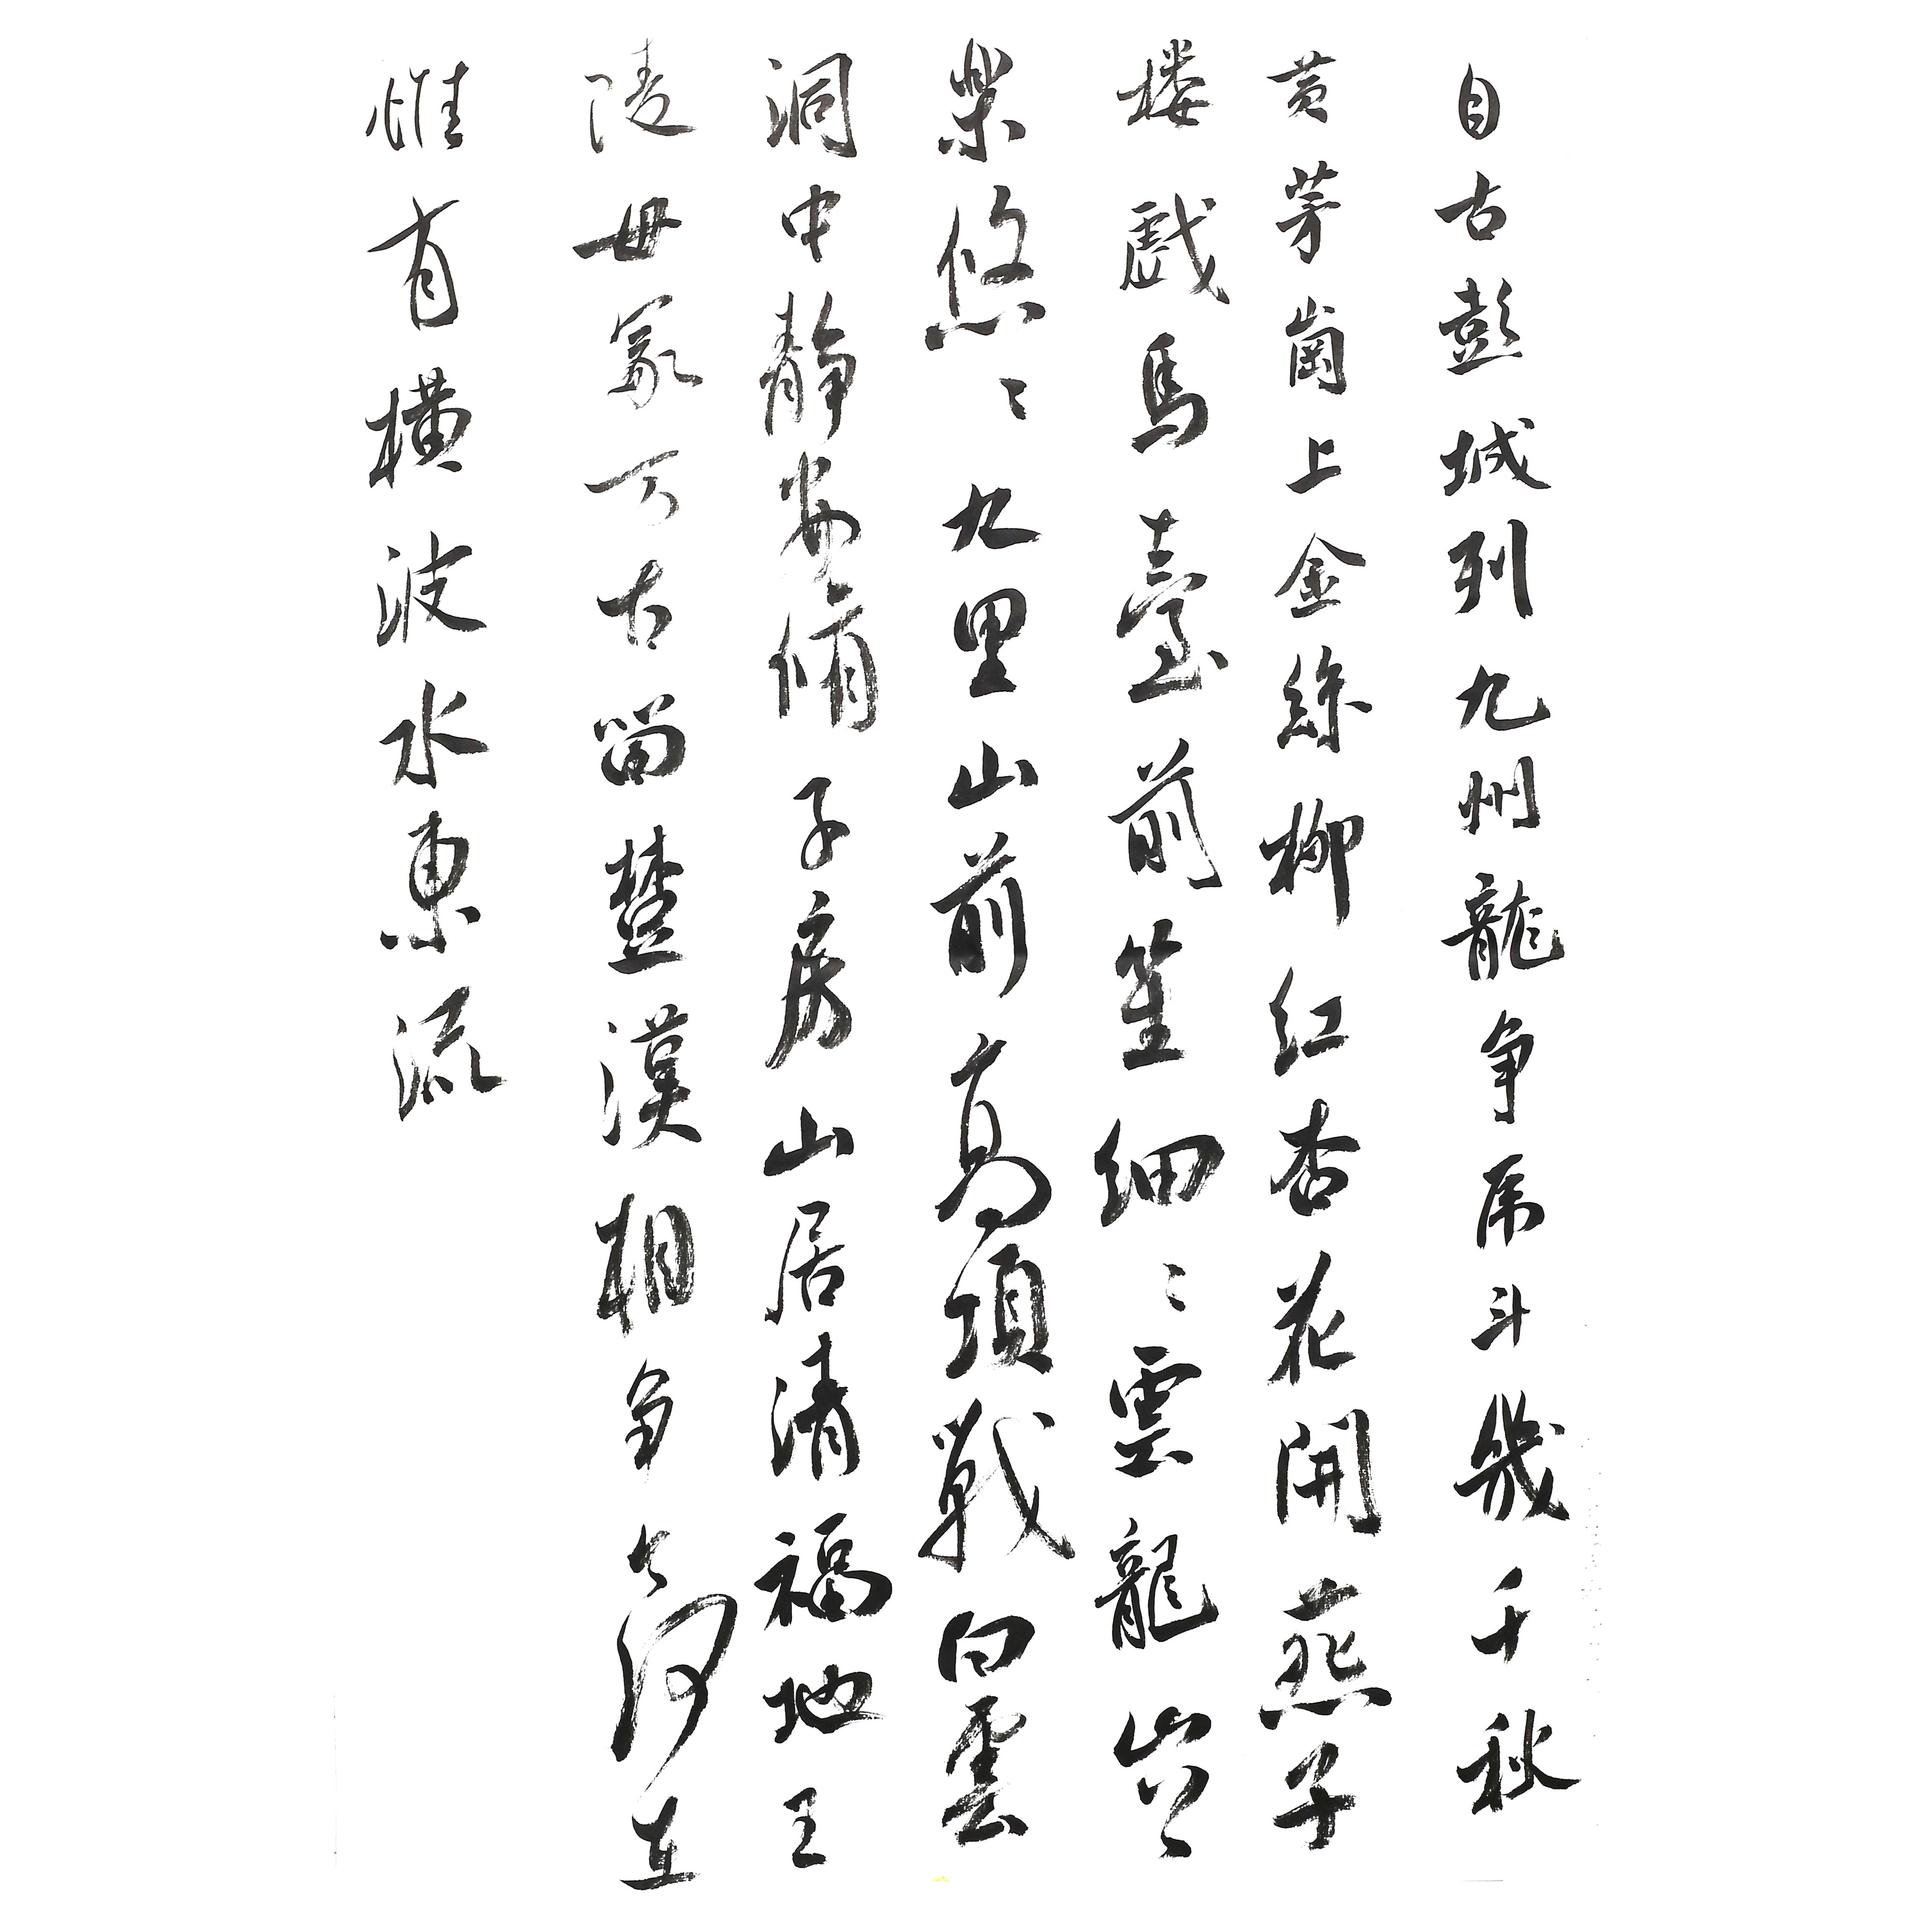 自古彭城列九州龍争虎斗幾千秋
黄茅崗上金絲柳紅杏花開燕子
楼戯馬臺前笙細〻雲龍山
業悠〻九里山前高項戰白雲
洞中靜安脩子房山居清福地王
陵母冢万古留楚漢相争今何在
惟有横波水東流